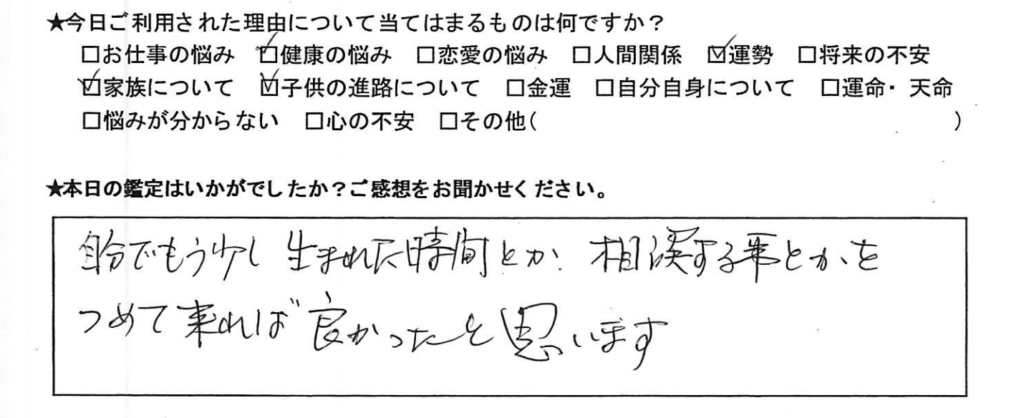 ★今日ご利用された理由について当てはまるものは何ですか？
□お仕事の悩み ☑健康の悩み □恋愛の悩み □人間関係 ☑運勢 □将来の不安
☑家族について ☑子供の進路について □金運 □自分自身について □運命・天命
□悩みが分からない □心の不安 □その他( )
★本日の鑑定はいかがでしたか？ご感想をお聞かせください。
自分でもう少し 生まれた時間とか、相談する事とかを
つめて来れば良かったと思います